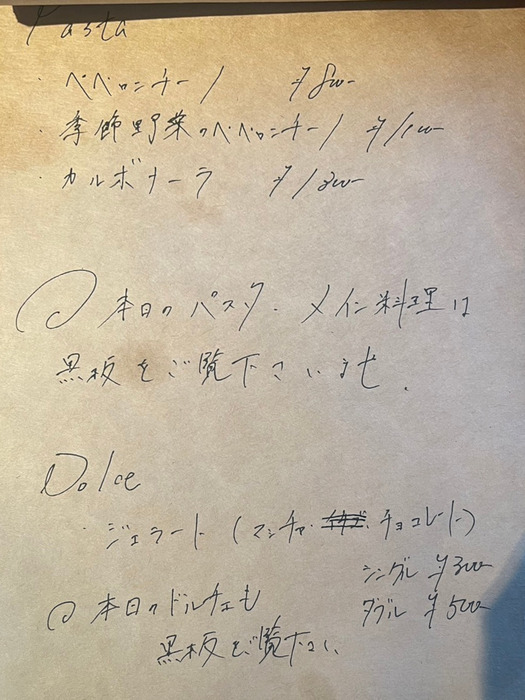 Pasta
・ペペロンチーノ ¥800-
・季節野菜のペペロンチーノ ¥1100-
・カルボナーラ ¥1300-
◎本日のパスタ・メイン料理は
黒板をご覧下さいませ.
Dolce
・ジェラート (マッチャ・チョコレート)
シングル ¥300-
ダブル ¥500-
◎本日のドルチェも
黒板をご覧下さい